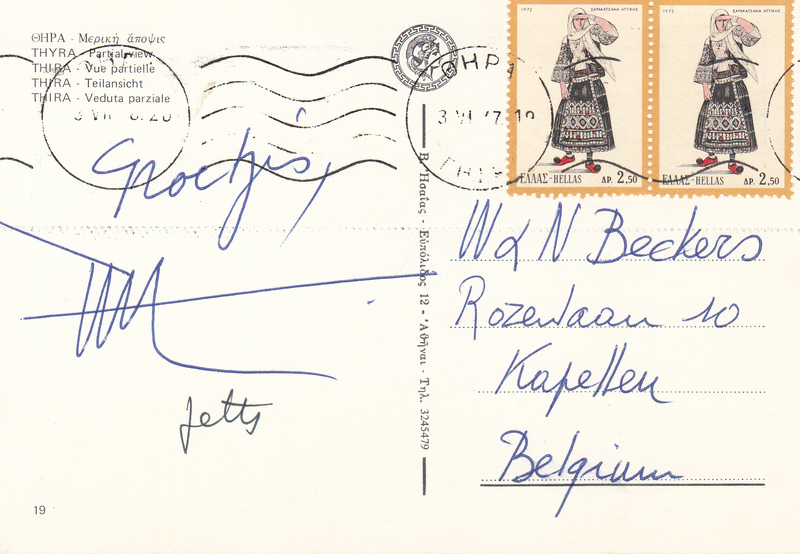 ΘΗΡΑ - Μερικὴ ἄποψις
THYRA - Partial view
THIRA - Vue partielle
THIRA - Teilansicht
THIRA - Veduta parziale
Groetjes,
Jetts
19
Β. Ἠσαΐας - Εὐπόλιδος 12 - Ἀθῆναι - Τηλ. 3245479
ΘΗΡΑ
1972 ΣΑΡΑΚΑΤΣΑΝΑ ΑΤΤΙΚΗΣ
ΕΛΛΑΣ-HELLAS ΔΡ. 2,50
1972 ΣΑΡΑΚΑΤΣΑΝΑ ΑΤΤΙΚΗΣ
ΕΛΛΑΣ-HELLAS ΔΡ. 2,50
W & N Beckers
Rozenlaan 10
Kapellen
Belgium